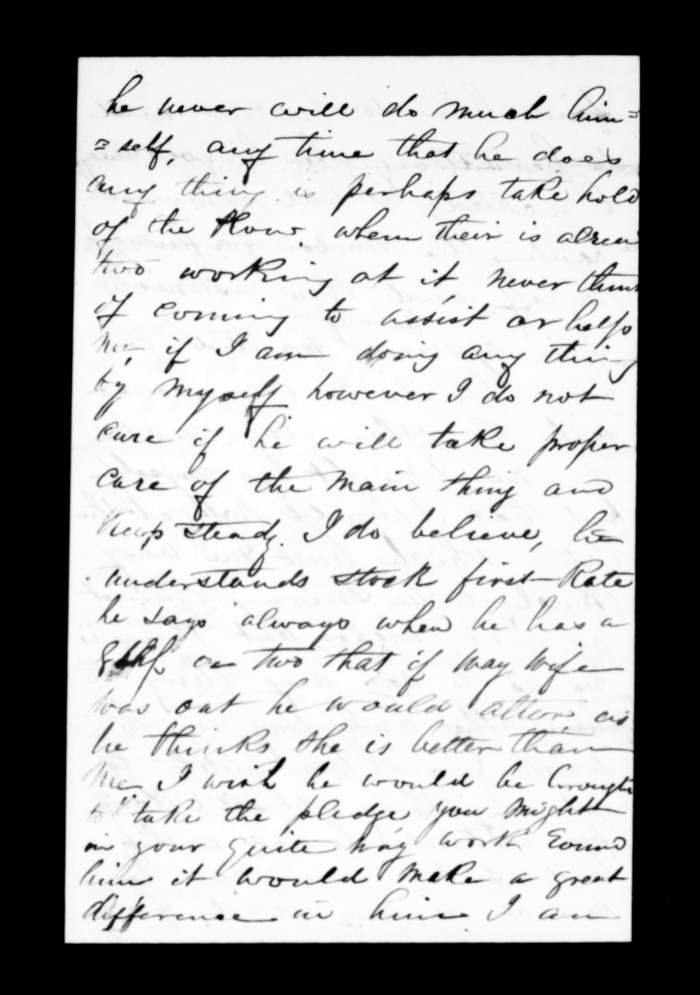 he never will do much him=
=self, any time that he does
any thing is perhaps take hold
of the Plow, when their is alrea
two working at it never think
of coming to assist or help
me, if I am doing any thing
by myself however I do not
care if he will take proper
care of the main thing and
keep steady. I do believe, he
understands stock first-Rate
he says always when he has a
or two that if way wife
was out he would alter, as
he thinks she is better than
me I wish he would be brought
to take the pledge you might
in your quite way work round
him it would make a great
difference in him I am